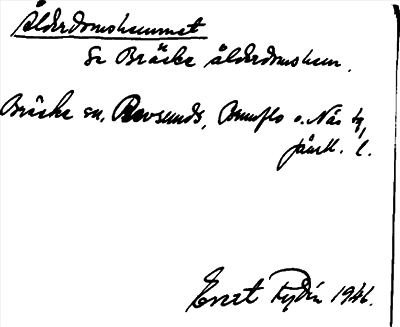 Ålderdomshemmet
Se Bräcke ålderdomshem.
Bräcke sn, Revsunds, Brunflo o. Näs tg,
Jämtl. l.
Ernst 1946.